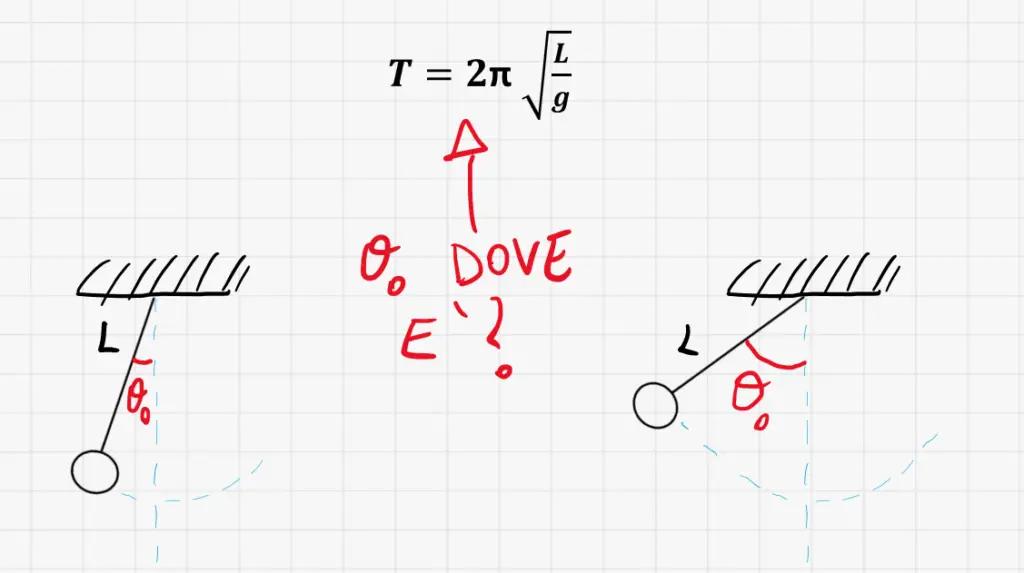 T = 2π √(L/g)
θ₀ DOVE
E'?
L
θ₀
L
θ₀